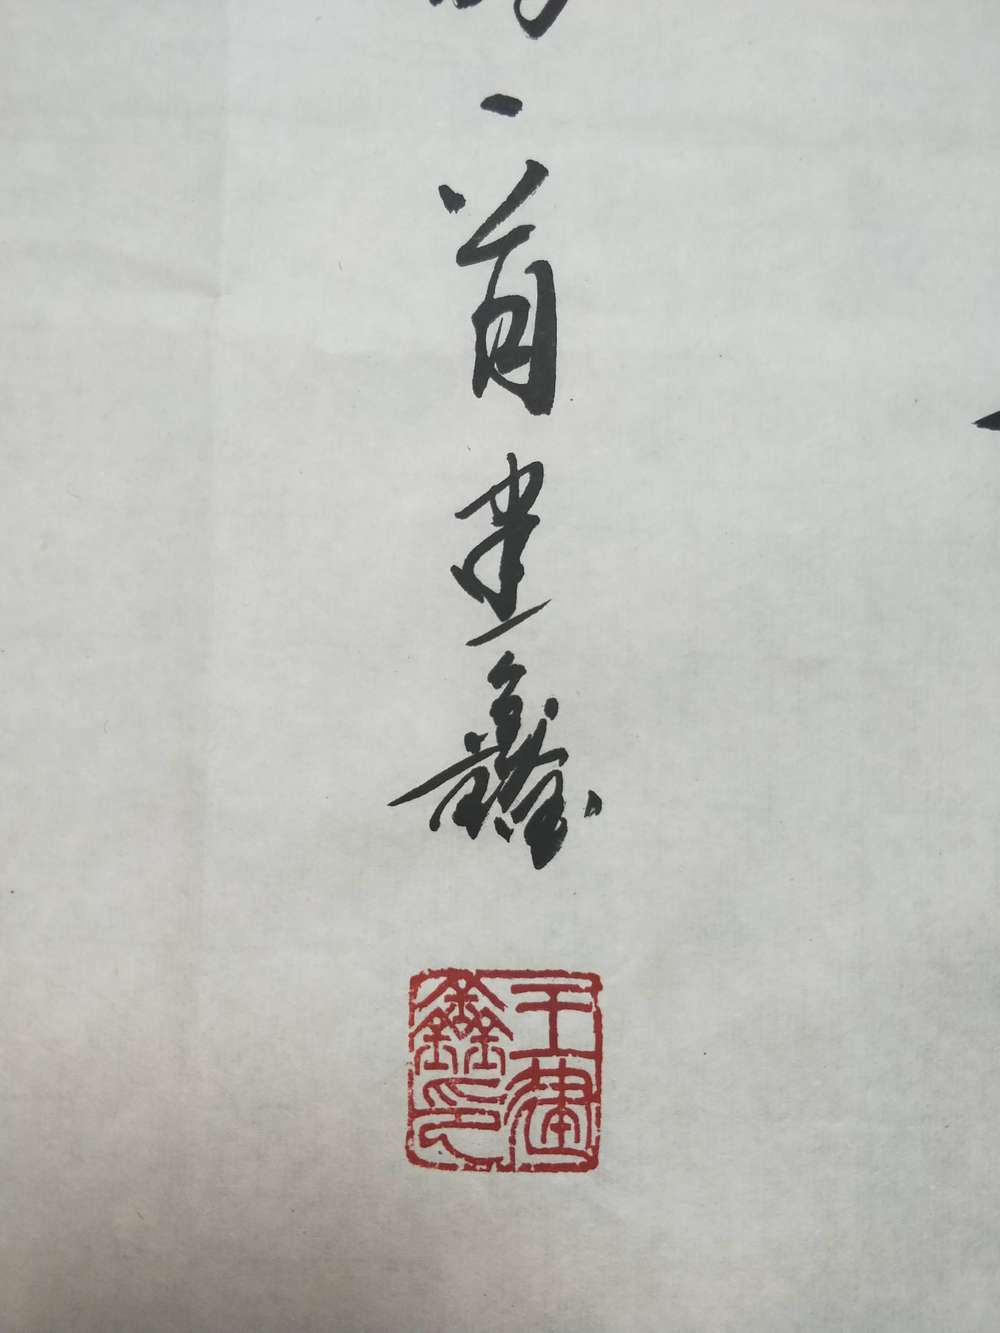 一首建鑫
王建
鑫印